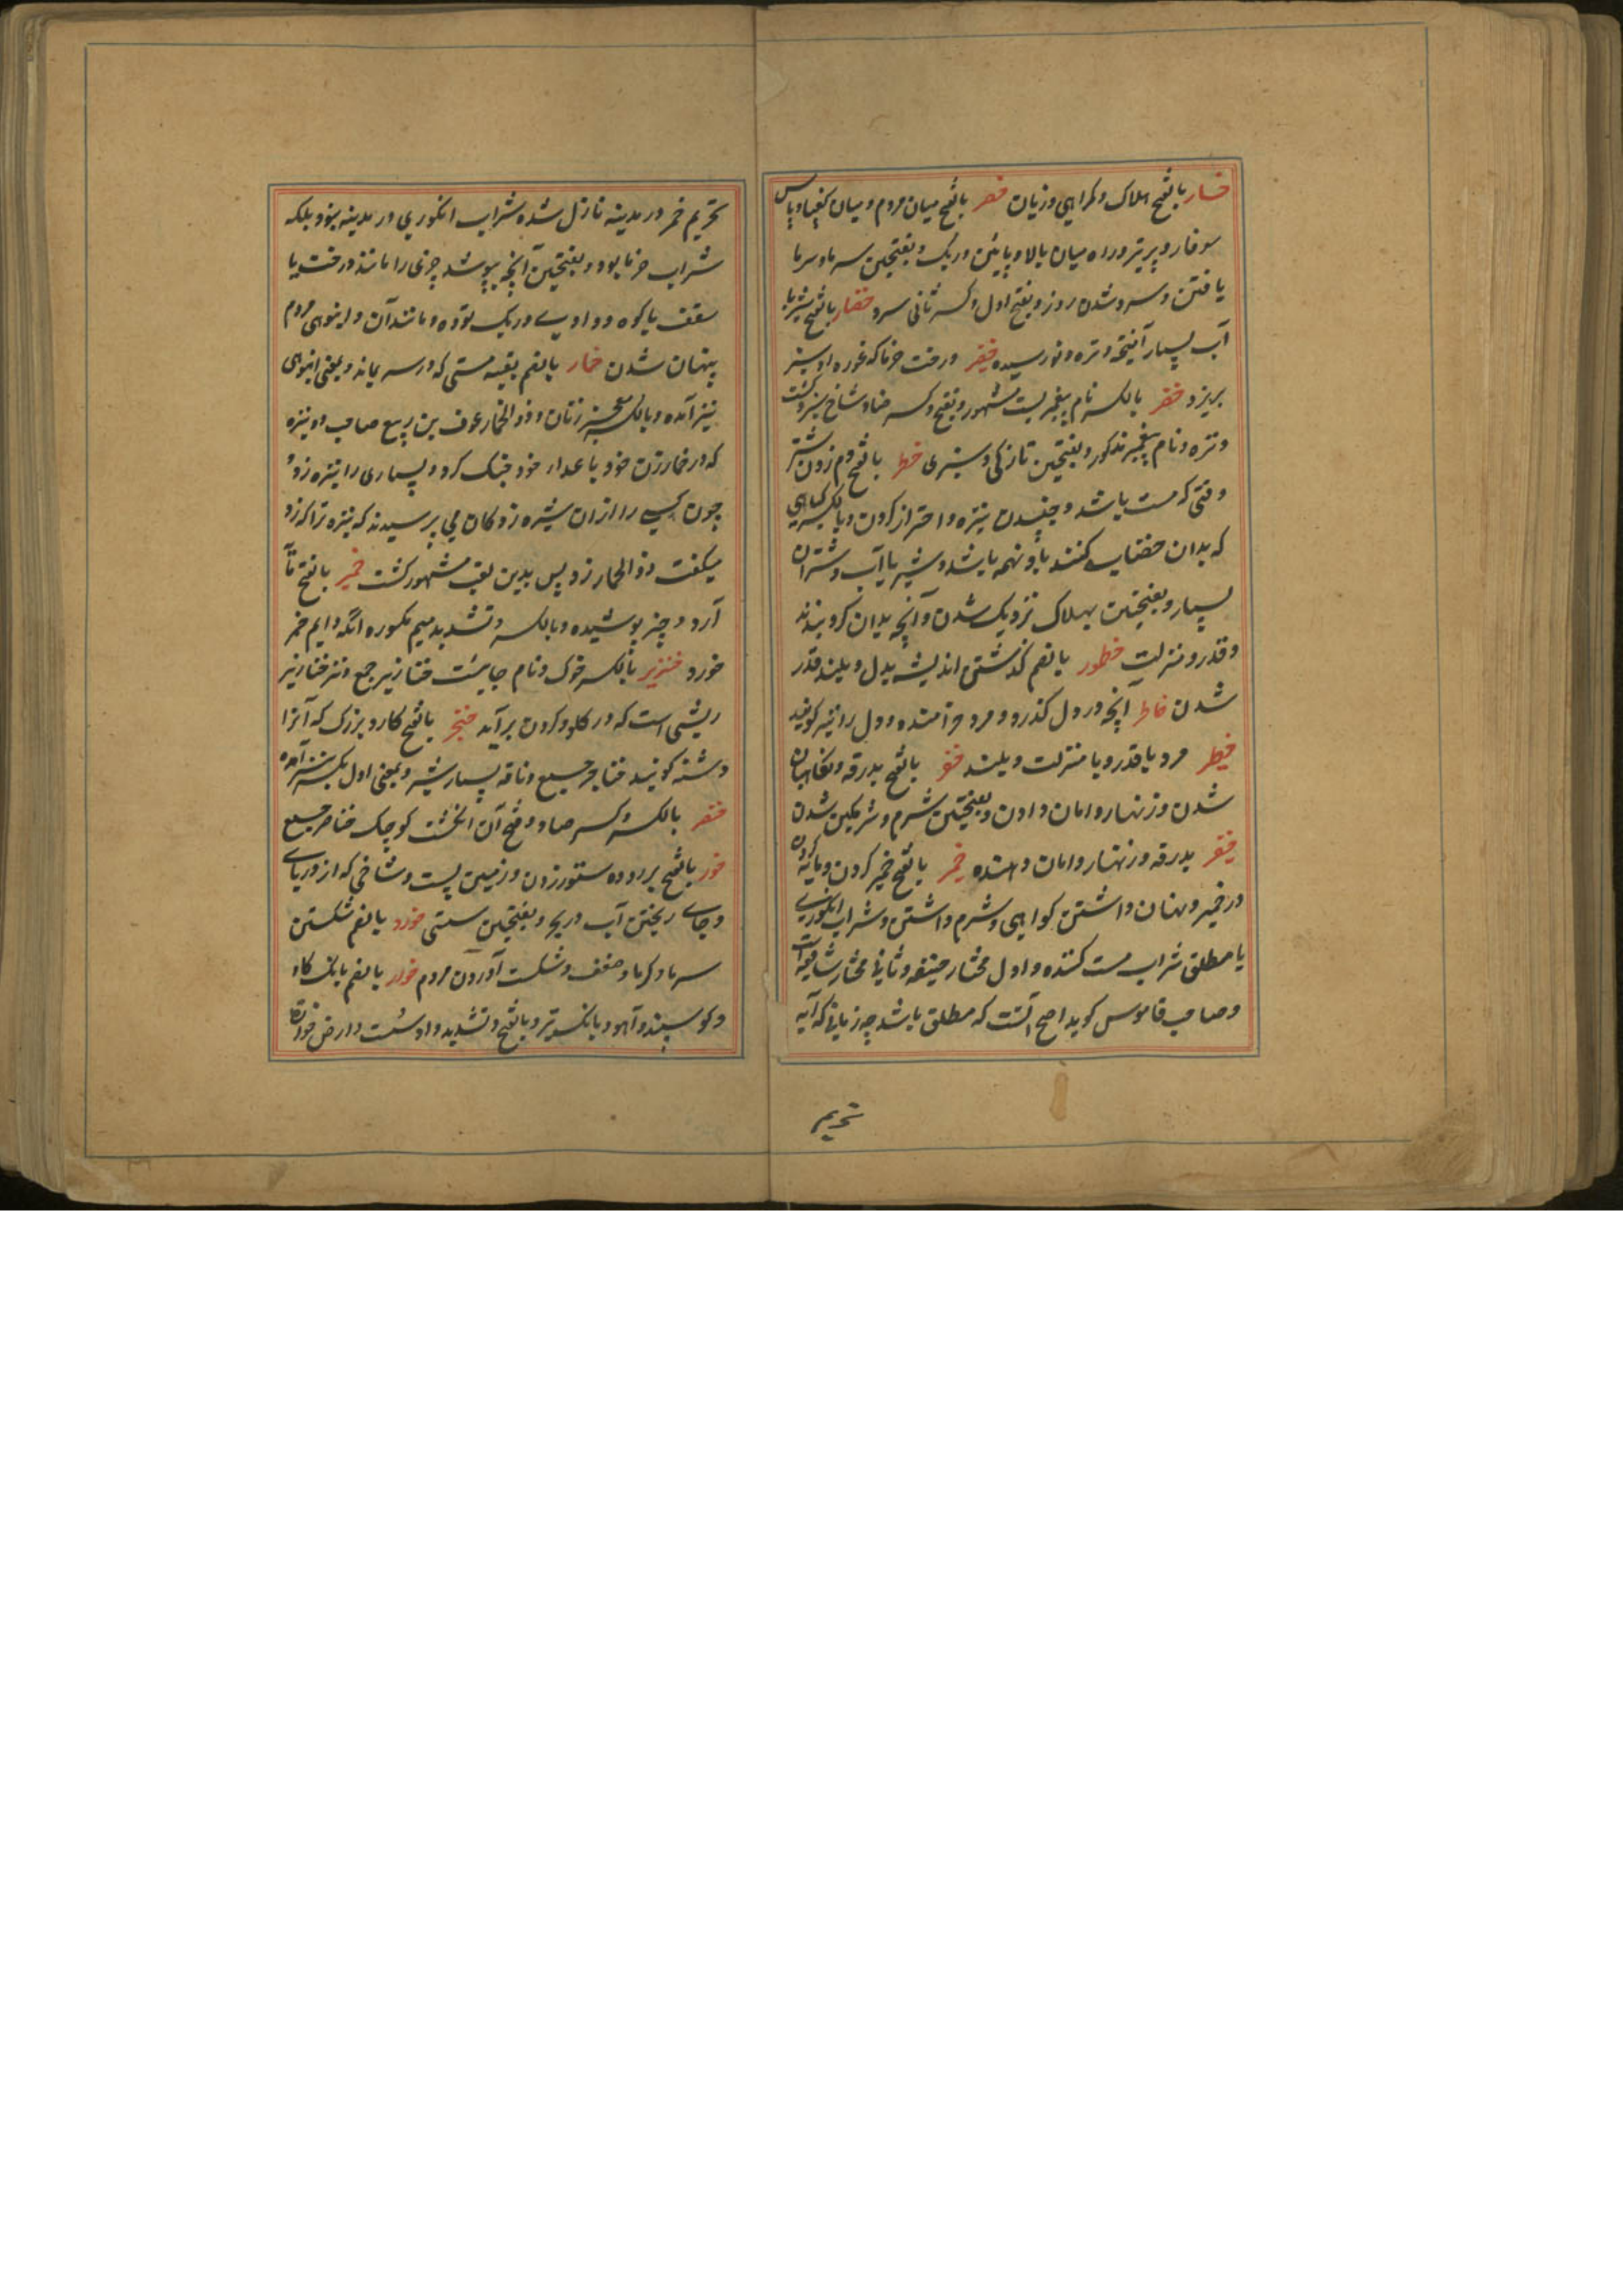 خسار بالفتح هلاک و کمراهی و زیان خصر بالفتح میان مردم و میان کف پا و پاپس
سوفار و پر تیر و راه میان بالا و پایین ریک و بفتحتین سرما و سرما
یافتن و سرد شدن روز و بفتح اول و کسر ثانی سرد خضار بالفتح شیر با
آب بسیار آمیخته و تره نورسیده خضر درخت خرما که غوره او سبز
بریزد خضر بالکسر نام پیغمبریست مشهور و بفتح و کسر ضاد شاخ سبز و کشت
و تره و نام پیغمبر مذکور و بفتحتین تازکی و سبزی خطر بالفتح دم زدن شتر
وقتی که مست باشد و جنبیدن نیزه و احتراز کردن و بالکسر کیاهی
که بدان خضاب کنند یا وسمه باشد و شیر با آب و شتران
بسیار و بفتحتین بهلاک نزدیک شدن و آنچه بدان کرو بندند
و قدر و منزلت خطور بالضم کذشتن اندیشه بدل و بلند قدر
شدن خاطر آنچه در دل کذرد و مرد خرامنده و دل را نیز کویند
خطیر مرد با قدر و با منزلت و بلند خفر بالفتح بدرقه و نکاهبان
شدن و زنهار و امان دادن و بفتحتین شرم و شرمکین شدن
خفیر بدرقه و زنهار و امان دهنده خمر بالفتح خمیر کردن و مایه کردن
در خمیر و پنهان داشتن کواهی و شرم داشتن و شراب انکوری
یا مطلق شراب مست کننده و اول مختار حنیفه و ثانی مختار شافعیه است
و صاحب قاموس کوید اصح آنست که مطلق باشد چه زمانی که آیه
تحریم
تحریم خمر در مدینه نازل شده شراب انکوری در مدینه نبود بلکه
شراب خرما بود و بفتحتین آنچه بپوشد چیزی را مانند درخت یا
سقف یا کوه و وادی و ریک توده و مانند آن و انبوهی مردم
پنهان شدن خمار بالضم بقیه مستی که در سر بماند و بمعنی انبوهی
نیز آمده و بالکسر معجر زنان و ذو الخمار عوف بن ربیع صاحب دو نیزه
که در خمار زن خود با عدا خود جنک کرد و بسیاری را نیزه زد
چون کسی را از ان نیزه زدکان می پرسیدند که نیزه ترا که زد
میکفت ذو الخمار زد پس بدین لقب مشهور کشت خمیر بالفتح
آرد و چیز پوشیده و بالکسر و تشدید میم مکسوره آنکه دایم خمر
خورد خنزیر بالکسر خوک و نام جاییست خنازیر جمع و نیز خنازیر
ریشی است که در کلو و کردن برآید خنجر بالفتح کارد بزرک که آنرا
دشنه کویند خناجر جمع و ناقه بسیار شیر و بمعنی اول بکسر نیز آمده
خنصر بالکسر و کسر صاد و فتح آن انکشت کوچک خناصر جمع
خور بالفتح بر روده ستور زدن و زمین پست و شاخی که از دریا
و جای ریختن آب دریا و بفتحتین سستی خورد بالضم شکستن
سرما و کرما و ضعف و شکست آوردن مردم خوار بالضم بانک کاو
و کوسپند و آهو و بانک تیر و بالفتح و تشدید واو سست و ارض خوارة